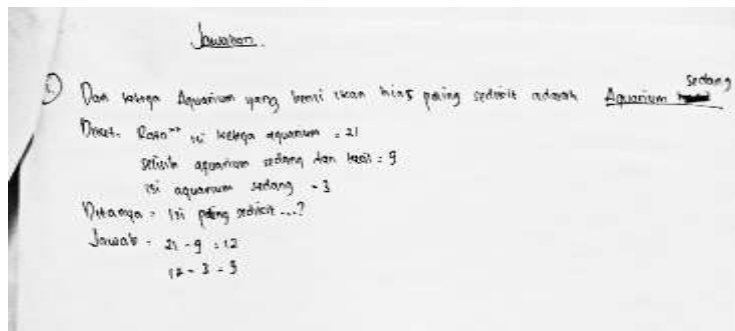 Jawaban.
1.) Dari ketiga Aquarium yang berisi ikan hias paling sedikit adalah Aquarium sedang
Diket. Rata"" isi ketiga aquarium = 21
selisih aquarium sedang dan kecil = 9
isi aquarium sedang = 3
Ditanya = Isi paling sedikit ...?
Jawab = 21 - 9 = 12
12 - 3 = 9